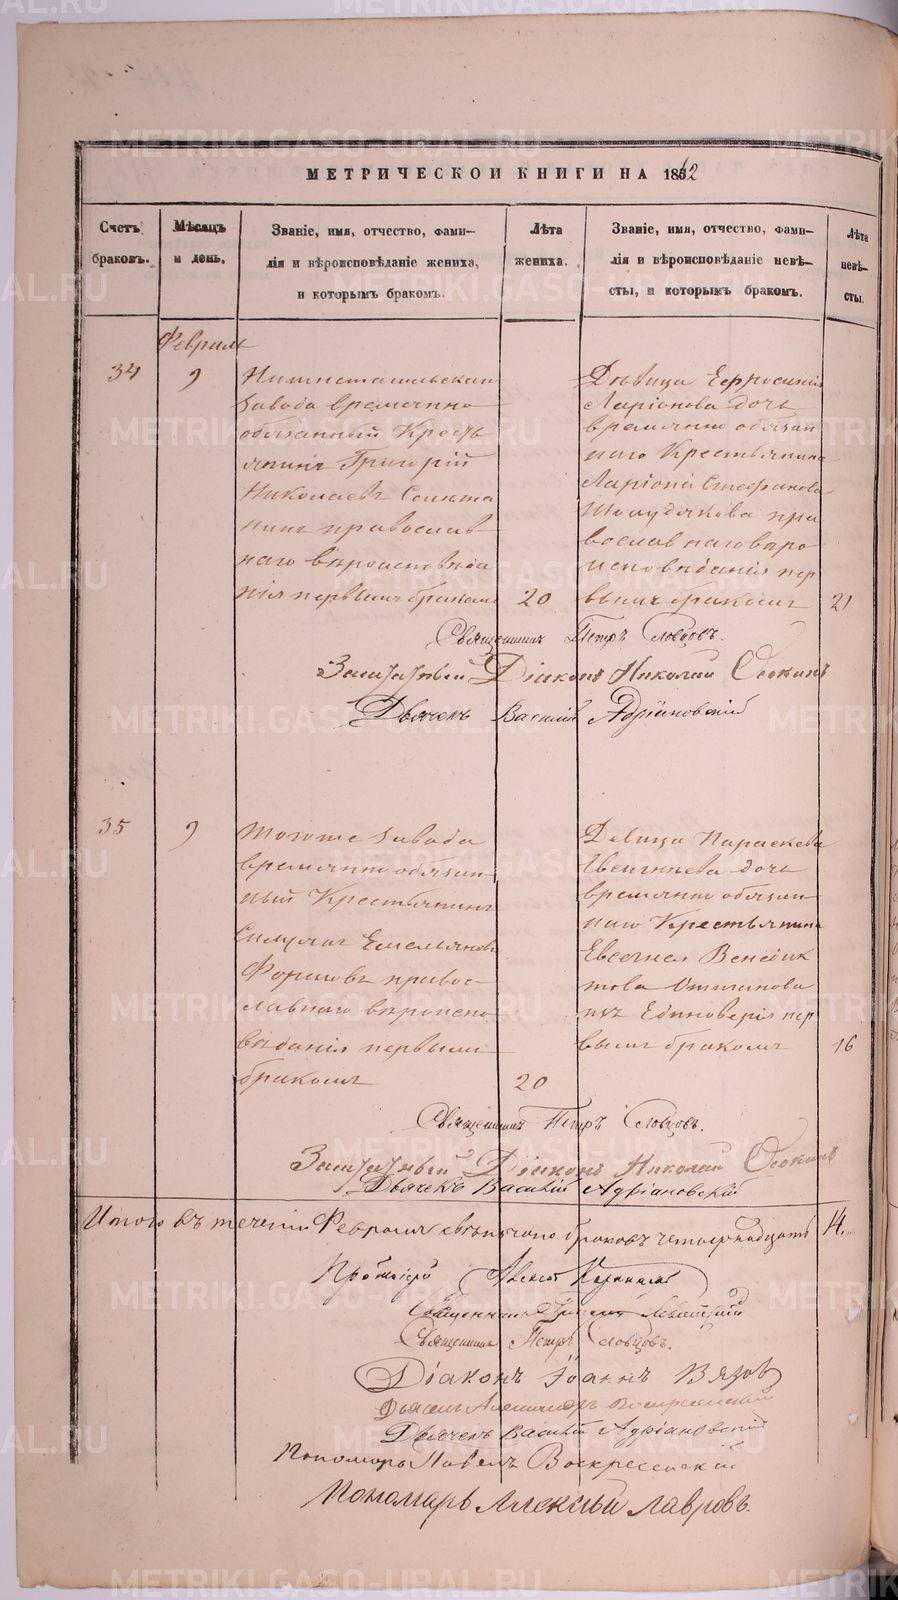 МЕТРИЧЕСКОЙ КНИГИ НА 1862
Счетъ браковъ.
Мѣсяцъ и день.
Званіе, имя, отчество, фами-
лія и вѣроисповѣданіе жениха,
и которымъ бракомъ.
Лѣта жениха.
Званіе, имя, отчество, фами-
лія и вѣроисповѣданіе невѣ-
сты, и которымъ бракомъ.
Лѣта невѣ-
сты.
Февраль
34
9
завода временно
обязанный Кресть
янинъ Григорій
Николаевъ
православ
наго вѣроисповѣда
нія первымъ бракомъ
20
Дѣвица Ефросинія
Ларіонова дочь
временно обязан
наго Крестьянина
Ларіона Стефанова
пра
вославнаго вѣро
исповѣданія пер
вымъ бракомъ
21
Священникъ Петръ Словцовъ.
Заштатный Діаконъ Николай Осокинъ
Дьячекъ Василій Адріановскій
35
9
Тогоже завода
временно обязан
ный Крестьянинъ
Емельяновъ
правос
лавнаго вѣроиспо
вѣданія первымъ
бракомъ
20
Девица Параскева
дочь
временно обязан
наго Крестьянина
Венедик
това
Единоверія пер
вымъ бракомъ
16
Священникъ Петръ Словцовъ.
Заштатный Діаконъ Николай Осокинъ
Дьячекъ Василій Адріановскій
Итого въ теченіи Февраля браковъ четырнадцать 14.
Протоіерей
Священникъ
Священникъ Петръ Словцовъ.
Діаконъ Іоаннъ Вязов
Дьячекъ Александръ Воскресенскій
Дьячекъ Василій Адріановскій
Пономарь Павелъ Воскресенскій
Пономарь Алексѣй Лавровъ.
METRIKI.GASO-URAL.RU